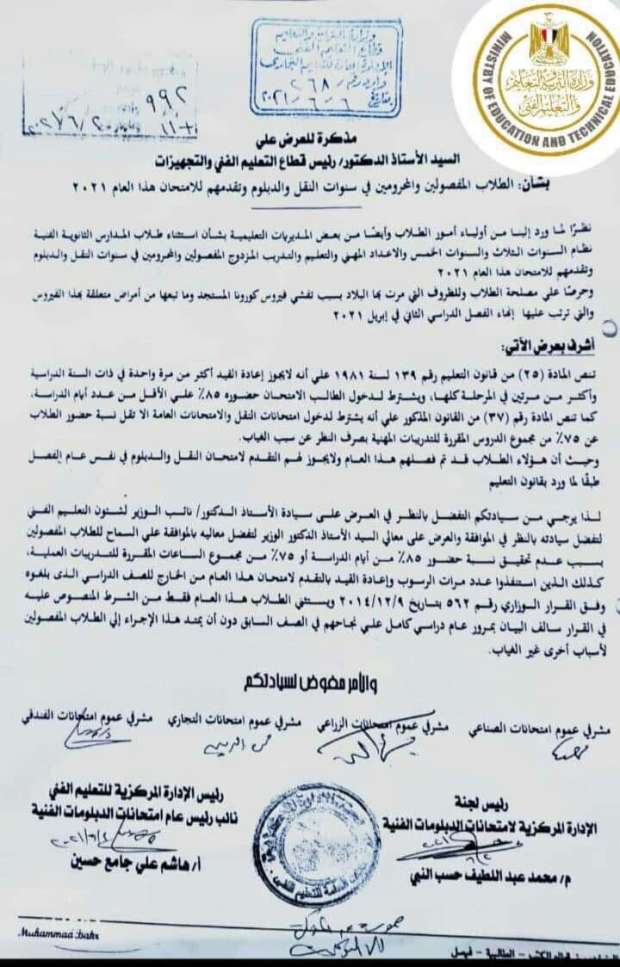 وزارة التربية والتعليم
قطاع التعليم الفني
٢٦٨
٢٠٢١/٦/٦
٩٩٢
وزارة التربية والتعليم
والتعليم الفني
MINISTRY OF EDUCATION AND TECHNICAL EDUCATION
مذكرة للعرض علي
السيد الأستاذ الدكتور/ رئيس قطاع التعليم الفني والتجهيزات
بشأن: الطلاب المفصولين والمحرومين في سنوات النقل والدبلوم وتقدمهم للامتحان هذا العام ٢٠٢١
نظرًا لما ورد إلينا من أولياء أمور الطلاب وأيضًا من بعض المديريات التعليمية بشأن استثناء طلاب المدارس الثانوية الفنية
نظام السنوات الثلاث والسنوات الخمس والاعداد المهني والتعليم والتدريب المزدوج المفصولين والمحرومين في سنوات النقل والدبلوم
وتقدمهم للامتحان هذا العام ٢٠٢١
وحرصًا علي مصلحة الطلاب وللظروف التي مرت بها البلاد بسبب تفشي فيروس كورونا المستجد وما تبعها من أمراض متعلقة بهذا الفيروس
والتي ترتب عليها إنهاء الفصل الدراسي الثاني في إبريل ٢٠٢١
أشرف بعرض الأتي:
تنص المادة (٢٥) من قانون التعليم رقم ١٣٩ لسنة ١٩٨١ علي أنه لايجوز إعادة القيد أكثر من مرة واحدة في ذات السنة الدراسية
وأكثر من مرتين في المرحلة كلها، ويشترط لدخول الطالب الامتحان حضوره ٨٥٪ علي الأقل من عدد أيام الدراسة،
كما تنص المادة رقم (٣٧) من القانون المذكور علي أنه يشترط لدخول امتحانات النقل والامتحانات العامة الا تقل نسبة حضور الطلاب
عن ٧٥٪ من مجموع الدروس المقررة للتدريبات المهنية بصرف النظر عن سبب الغياب.
وحيث أن هؤلاء الطلاب قد تم فصلهم هذا العام ولايجوز لهم التقدم لامتحان النقل والدبلوم في نفس عام الفصل
طبقًا لما ورد بقانون التعليم
لذا يرجي من سيادتكم التفضل بالنظر في العرض علي سيادة الأستاذ الدكتور/ نائب الوزير لشئون التعليم الفني
لتفضل سيادته بالنظر في الموافقة والعرض علي معالي السيد الأستاذ الدكتور الوزير لتفضل معاليه بالموافقة علي السماح للطلاب المفصولين
بسبب عدم تحقيق نسبة حضور ٨٥٪ من أيام الدراسة أو ٧٥٪ من مجموع الساعات المقررة للتدريبات العملية،
كذلك الذين استنفذوا عدد مرات الرسوب وإعادة القيد بالتقدم لامتحان هذا العام من الخارج للصف الدراسي الذى بلغوه
وفق القرار الوزاري رقم ٥٦٢ بتاريخ ٢٠١٤/١٢/٩ ويستثني الطلاب هذا العام فقط من الشرط المنصوص عليه
في القرار سالف البيان بمرور عام دراسي كامل علي نجاحهم في الصف السابق دون أن يمتد هذا الإجراء إلي الطلاب المفصولين
لأسباب أخرى غير الغياب.
والأمر مفوض لسيادتكم
مشرفي عموم امتحانات الصناعي مشرفي عموم امتحانات الزراعي مشرفي عموم امتحانات التجاري مشرفي عموم امتحانات الفندقي
رئيس لجنة
الإدارة المركزية لامتحانات الدبلومات الفنية
م/ محمد عبد اللطيف حسب النبي
رئيس الإدارة المركزية للتعليم الفني
نائب رئيس عام امتحانات الدبلومات الفنية
أ/ هاشم علي جامع حسين